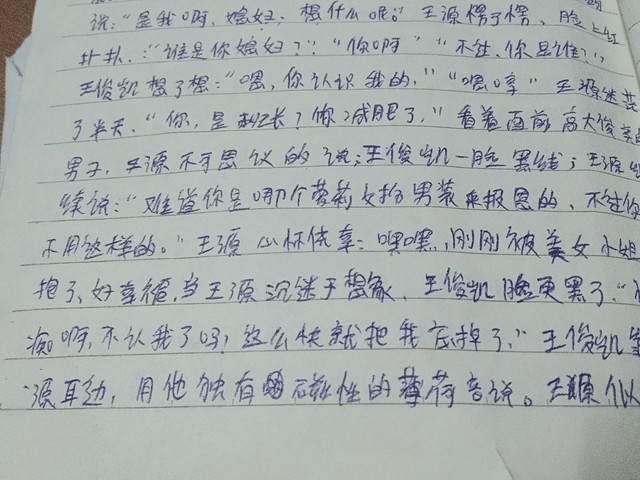 说:“是我啊,媳妇,想什么呢。”王源愣了愣,脸上红
扑扑.:“谁是你媳妇?!”“你啊”“不过,你是谁?”,
王俊凯想了想:“嗯,你认识我的.”“嗯哼”王源迷茫
了半天.“你,是 长?你减肥了.”看着面前高大俊美的
男子,王源不可思议的说;王俊凯一脸黑线;王源继
续说:“难道你是哪个萝莉女扮男装来报恩的、不过你
不用这样的。”王源心怀侥幸:嘿嘿,刚刚被美女小姐
抱了、好幸福.当王源沉迷于想象、王俊凯脸更黑了.“
痴啊,不认我了吗,这么快就把我忘掉了.”王俊凯
源耳边,用他独有 磁性的薄荷音说。王源似